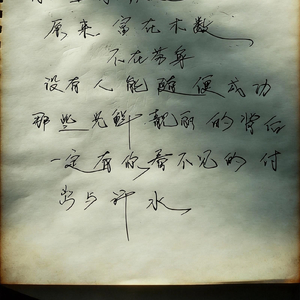 原来富在术数
不在劳身
没有人能随便成功
那些光鲜靓丽的背后
一定有你看不见的付
出与汗水